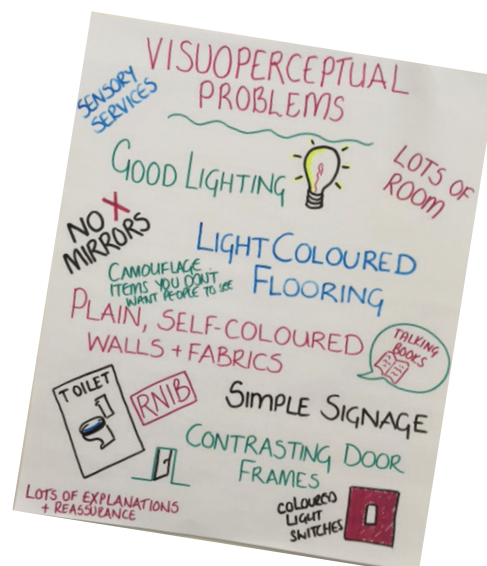 VISUOPERCEPTUAL
PROBLEMS
SENSORY
SERVICES
GOOD LIGHTING
LOTS OF
ROOM
NO X
MIRRORS
LIGHT COLOURED
FLOORING
CAMOUFLAGE
ITEMS YOU DON'T
WANT PEOPLE TO SEE
PLAIN, SELF-COLOURED
WALLS + FABRICS
TALKING
BOOKS
TOILET
RNIB
SIMPLE SIGNAGE
CONTRASTING DOOR
FRAMES
LOTS OF EXPLANATIONS
+ REASSURANCE
COLOURED
LIGHT
SWITCHES